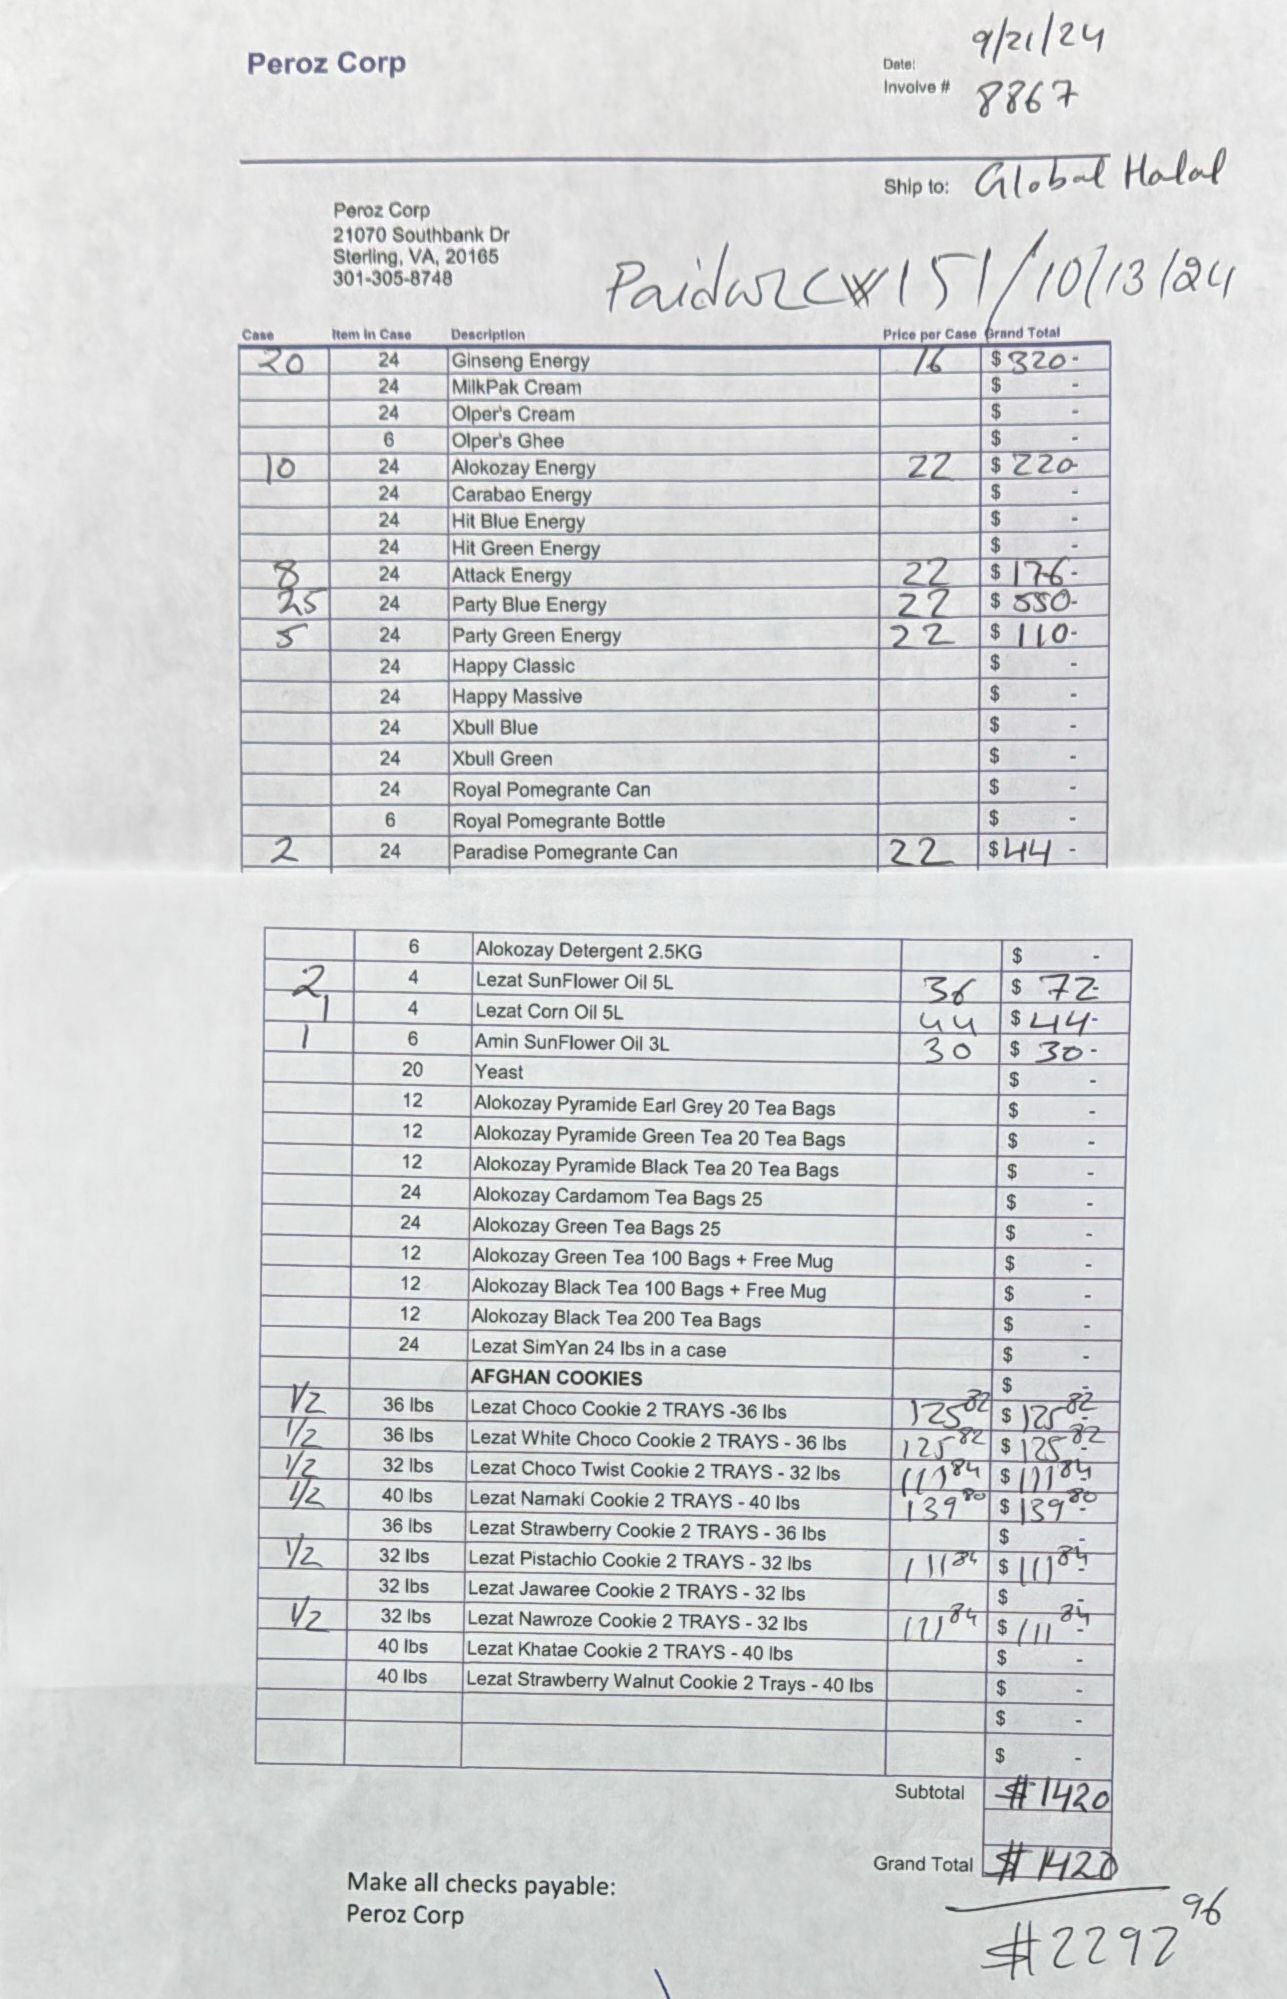 Peroz Corp
Date: 9/21/24
Involve # 8867
Ship to: Global Halal
Peroz Corp
21070 Southbank Dr
Sterling, VA, 20165
301-305-8748
Paid 151/10/13/24
Case Item in Case Description Price per Case Grand Total
20 24 Ginseng Energy 16 $ 320-
24 MilkPak Cream $ -
24 Olper's Cream $ -
6 Olper's Ghee $ -
10 24 Alokozay Energy 22 $ 220-
24 Carabao Energy $ -
24 Hit Blue Energy $ -
24 Hit Green Energy $ -
8 24 Attack Energy 22 $ 176-
25 24 Party Blue Energy 22 $ 550-
5 24 Party Green Energy 22 $ 110-
24 Happy Classic $ -
24 Happy Massive $ -
24 Xbull Blue $ -
24 Xbull Green $ -
24 Royal Pomegrante Can $ -
6 Royal Pomegrante Bottle $ -
2 24 Paradise Pomegrante Can 22 $ 44 -
6 Alokozay Detergent 2.5KG $ -
2 4 Lezat SunFlower Oil 5L 36 $ 72-
1 4 Lezat Corn Oil 5L 44 $ 44-
1 6 Amin SunFlower Oil 3L 30 $ 30-
20 Yeast $ -
12 Alokozay Pyramide Earl Grey 20 Tea Bags $ -
12 Alokozay Pyramide Green Tea 20 Tea Bags $ -
12 Alokozay Pyramide Black Tea 20 Tea Bags $ -
24 Alokozay Cardamom Tea Bags 25 $ -
24 Alokozay Green Tea Bags 25 $ -
12 Alokozay Green Tea 100 Bags + Free Mug $ -
12 Alokozay Black Tea 100 Bags + Free Mug $ -
12 Alokozay Black Tea 200 Tea Bags $ -
24 Lezat SimYan 24 lbs in a case $ -
AFGHAN COOKIES $ -
1/2 36 lbs Lezat Choco Cookie 2 TRAYS -36 lbs 125 82 $ 125 82
1/2 36 lbs Lezat White Choco Cookie 2 TRAYS - 36 lbs 125 82 $ 125 82
1/2 32 lbs Lezat Choco Twist Cookie 2 TRAYS - 32 lbs 111 84 $ 111 84
1/2 40 lbs Lezat Namaki Cookie 2 TRAYS - 40 lbs 139 80 $ 139 80
36 lbs Lezat Strawberry Cookie 2 TRAYS - 36 lbs $ -
1/2 32 lbs Lezat Pistachio Cookie 2 TRAYS - 32 lbs 111 84 $ 111 84
32 lbs Lezat Jawaree Cookie 2 TRAYS - 32 lbs $ -
1/2 32 lbs Lezat Nawroze Cookie 2 TRAYS - 32 lbs 111 84 $ 111 84
40 lbs Lezat Khatae Cookie 2 TRAYS - 40 lbs $ -
40 lbs Lezat Strawberry Walnut Cookie 2 Trays - 40 lbs $ -
$ -
$ -
Subtotal $1420
Grand Total $1420
Make all checks payable:
Peroz Corp
$2292 96